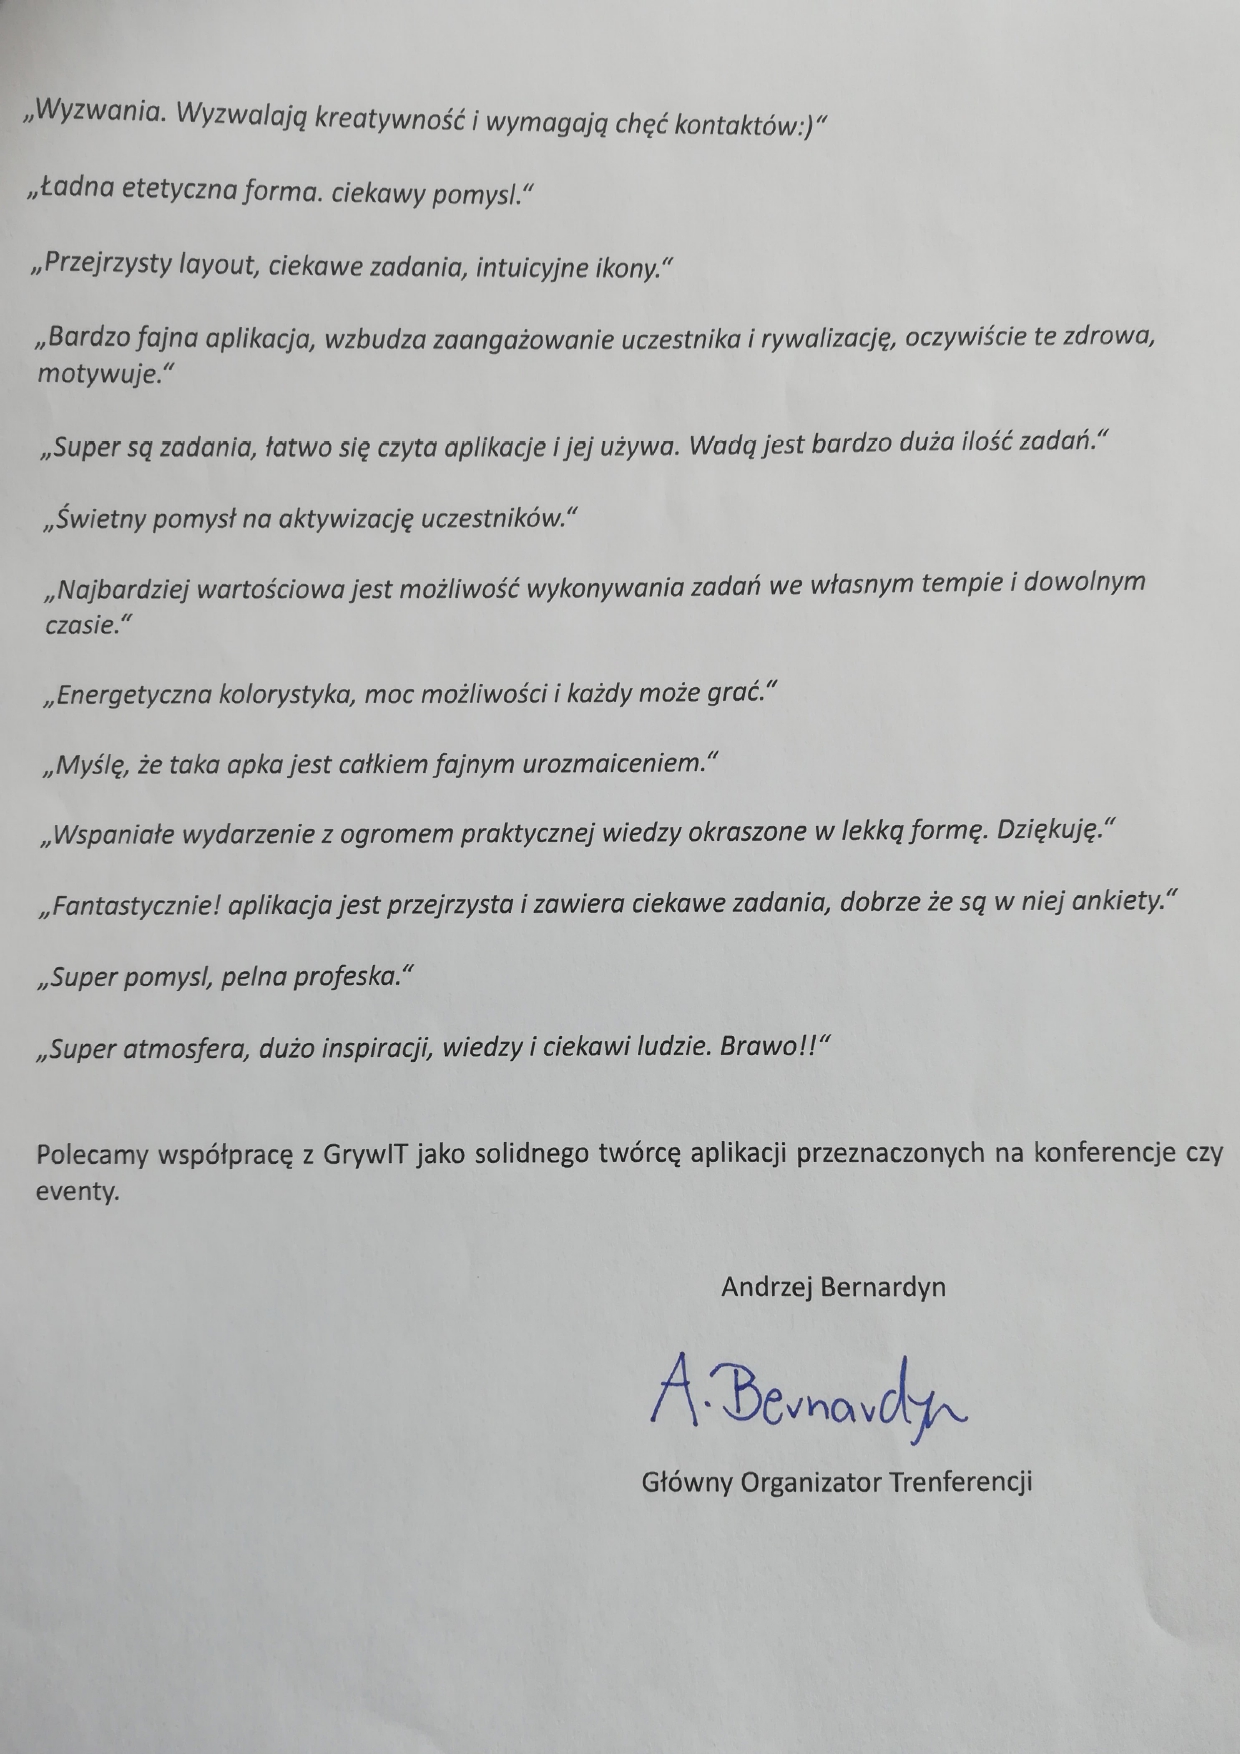 „Wyzwania. Wyzwalają kreatywność i wymagają chęć kontaktów:)“
„Ładna etetyczna forma. ciekawy pomysl.“
„Przejrzysty layout, ciekawe zadania, intuicyjne ikony.“
„Bardzo fajna aplikacja, wzbudza zaangażowanie uczestnika i rywalizację, oczywiście te zdrowa,
motywuje.“
„Super są zadania, łatwo się czyta aplikacje i jej używa. Wadą jest bardzo duża ilość zadań.“
„Świetny pomysł na aktywizację uczestników.“
„Najbardziej wartościowa jest możliwość wykonywania zadań we własnym tempie i dowolnym
czasie.“
„Energetyczna kolorystyka, moc możliwości i każdy może grać.“
„Myślę, że taka apka jest całkiem fajnym urozmaiceniem.“
„Wspaniałe wydarzenie z ogromem praktycznej wiedzy okraszone w lekką formę. Dziękuję.“
„Fantastycznie! aplikacja jest przejrzysta i zawiera ciekawe zadania, dobrze że są w niej ankiety.“
„Super pomysl, pelna profeska.“
„Super atmosfera, dużo inspiracji, wiedzy i ciekawi ludzie. Brawo!!“
Polecamy współpracę z GrywIT jako solidnego twórcę aplikacji przeznaczonych na konferencje czy
eventy.
Andrzej Bernardyn
A. Bernardyn
Główny Organizator Trenferencji